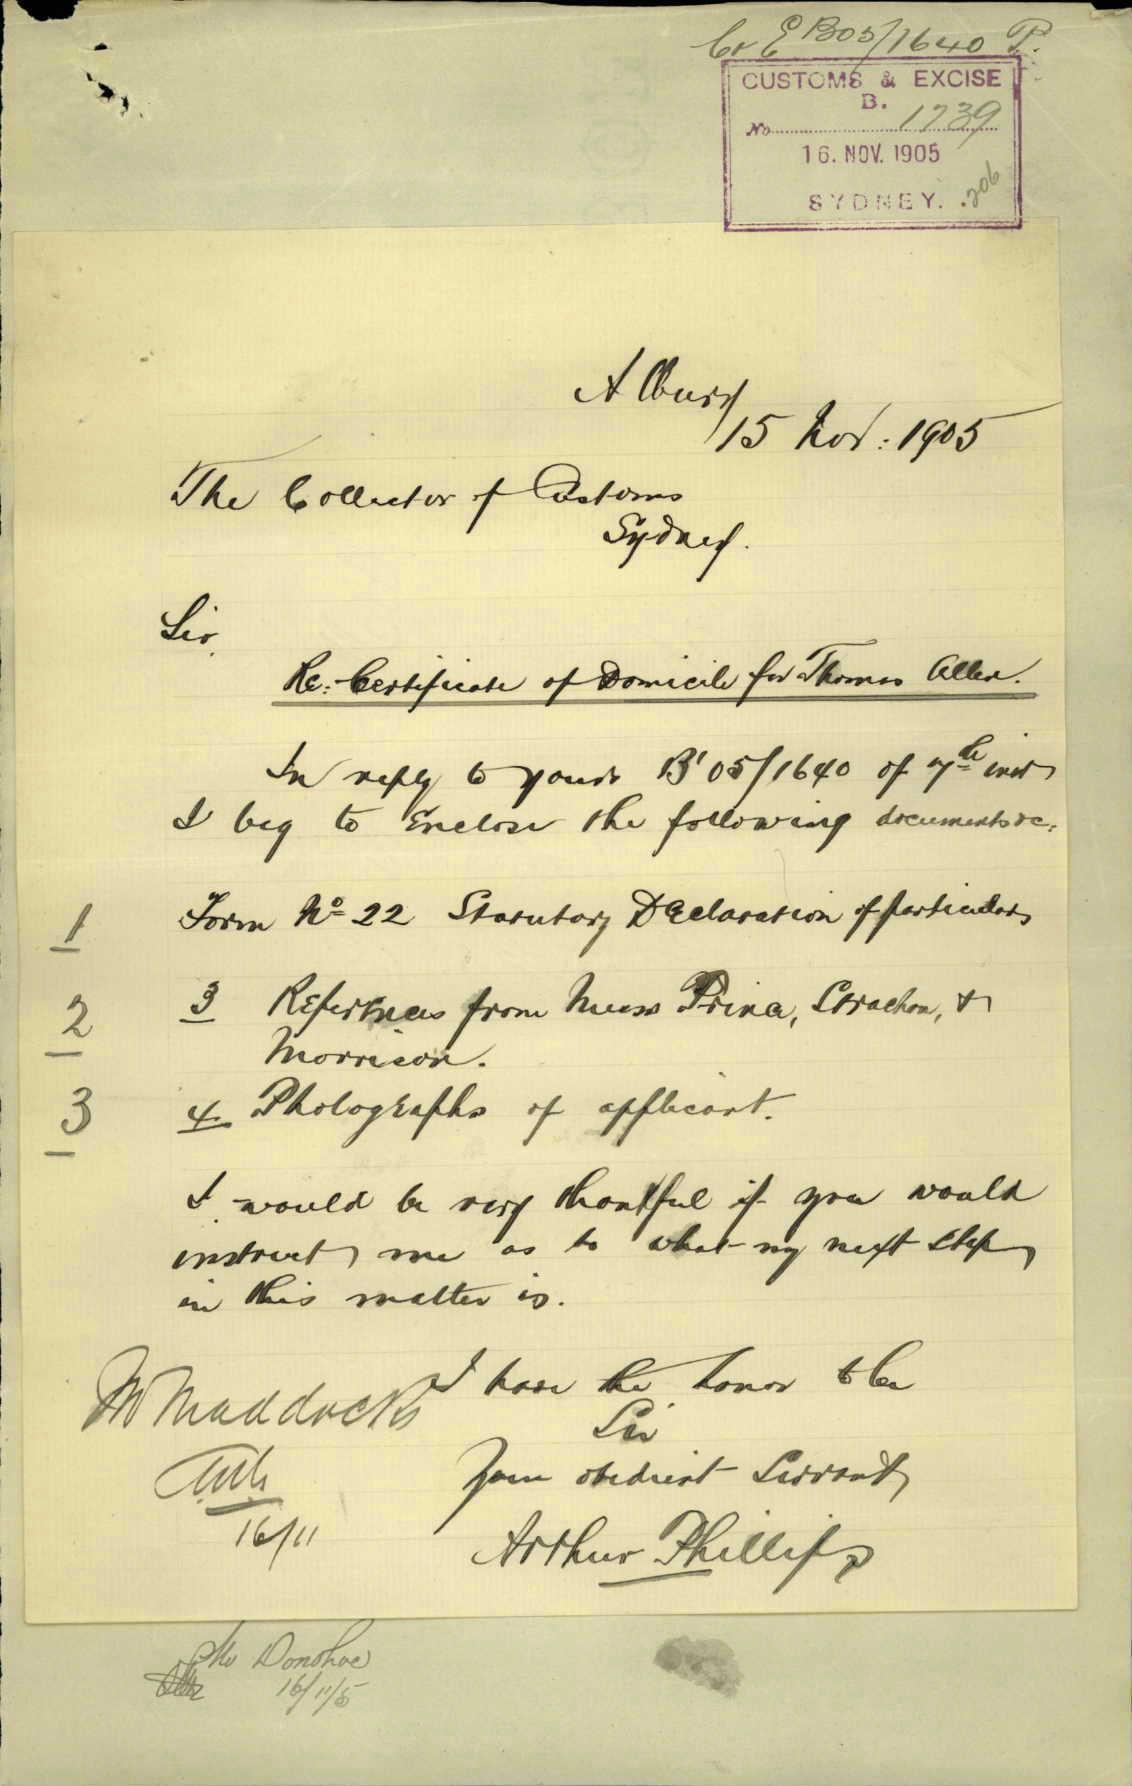 C & E B05/1640 P.
CUSTOMS & EXCISE
B.
No 1739
16. NOV. 1905
SYDNEY. .206
Albury
15 Nov: 1905
The Collector of Customs
Sydney.
Sir,
Re:- Certificate of Domicile for Thomas Allen.
In reply to yours B'05/1640 of 7th inst
I beg to Enclose the following documents &c.
1 Form No 22 Statutory Declaration of particulars
2 3 References from Messrs Prina, Strachan, &
Morrison.
3 4. Photographs of applicant.
I would be very thankful if you would
instruct me as to what my next step
in this matter is.
I have the honor to be
Sir
Your obedient Servant
Arthur Phillips
Mr Maddocks
16/11
Mr Donohoe
16/11/5